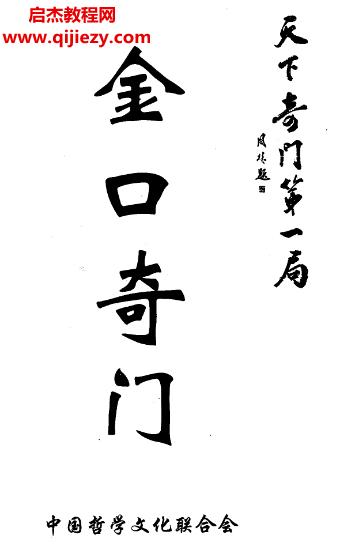 启杰教程网
www.qijiezy.com
天下奇门第一局
金口奇门
中国哲学文化联合会